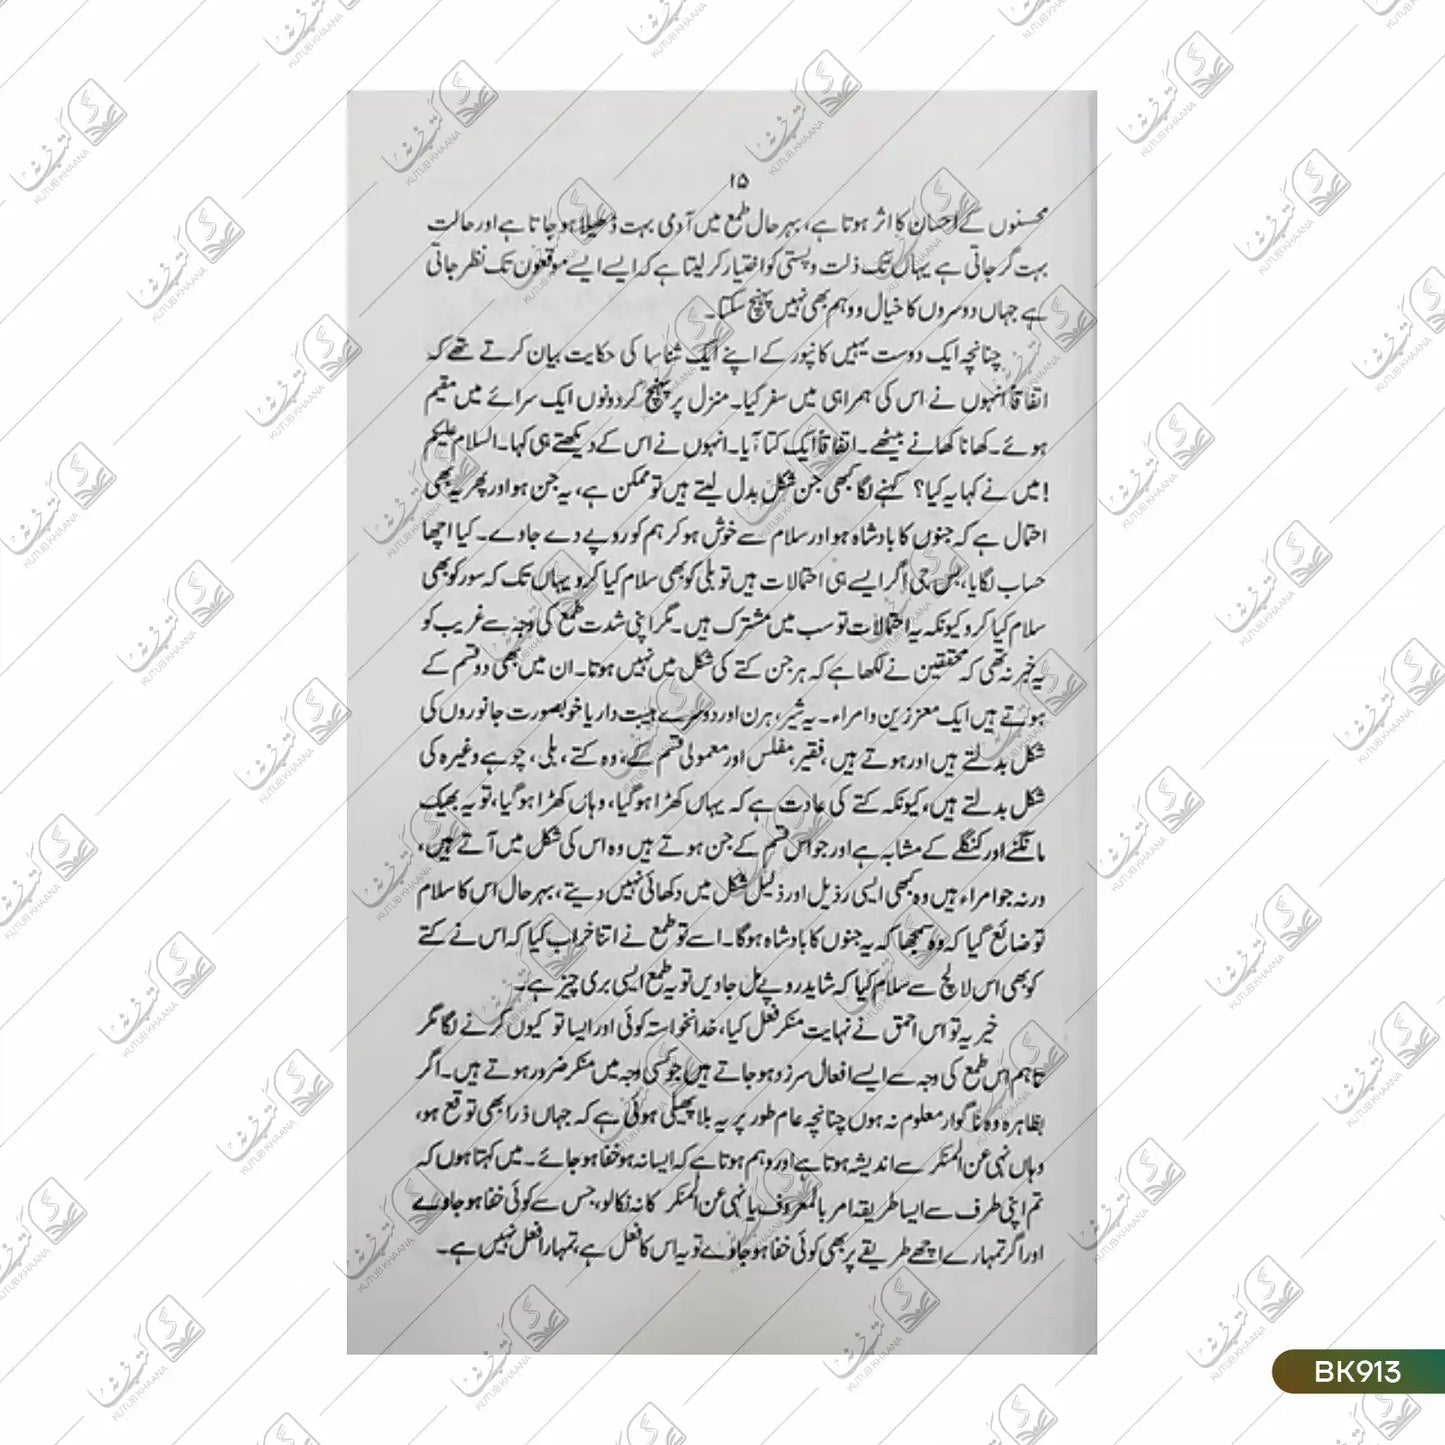 ۱۵
محسنوں کے احسان کا اثر ہوتا ہے، بہر حال طمع میں آدمی بہت ڈھیلا ہو جاتا ہے اور حالت
بہت گر جاتی ہے یہاں تک ذلت و پستی کو اختیار کر لیتا ہے کہ ایسے ایسے موقعوں تک نظر جاتی
ہے جہاں دوسروں کا خیال و وہم بھی نہیں پہنچ سکتا۔
چنانچہ ایک دوست یہیں کانپور کے اپنے ایک شناسا کی حکایت بیان کرتے تھے کہ
اتفاقاً انہوں نے اس کی ہمراہی میں سفر کیا۔ منزل پر پہنچ کر دونوں ایک سرائے میں مقیم
ہوئے۔ کھانا کھانے بیٹھے۔ اتفاقاً ایک کتا آیا۔ انہوں نے اس کے دیکھتے ہی کہا۔ السلام علیکم
! میں نے کہا یہ کیا؟ کہنے لگا کبھی جن شکل بدل لیتے ہیں تو ممکن ہے، یہ جن ہو اور پھر یہ بھی
احتمال ہے کہ جنوں کا بادشاہ ہو اور سلام سے خوش ہو کر ہم کو روپے دے جاوے۔ کیا اچھا
حساب لگایا، بس جی اگر ایسے ہی احتمالات ہیں تو بلی کو بھی سلام کیا کرو یہاں تک کہ سور کو بھی
سلام کیا کرو کیونکہ یہ احتمالات تو سب میں مشترک ہیں۔ مگر اپنی شدت طمع کی وجہ سے غریب کو
یہ خبر نہ تھی کہ محققین نے لکھا ہے کہ ہر جن کتے کی شکل میں نہیں ہوتا۔ ان میں بھی دو قسم کے
ہوتے ہیں ایک معززین و امراء۔ یہ شیر، ہرن اور دوسرے ہیبت دار یا خوبصورت جانوروں کی
شکل بدلتے ہیں اور ہوتے ہیں، فقیر، مفلس اور معمولی قسم کے، وہ کتے، بلی، چوہے وغیرہ کی
شکل بدلتے ہیں، کیونکہ کتے کی عادت ہے کہ یہاں کھڑا ہو گیا، وہاں کھڑا ہو گیا، تو یہ بھیک
مانگنے اور کنگلے کے مشابہ ہے اور جو اس قسم کے جن ہوتے ہیں وہ اس کی شکل میں آتے ہیں،
ورنہ جو امراء ہیں وہ کبھی ایسی رذیل اور ذلیل شکل میں دکھائی نہیں دیتے، بہر حال اس کا سلام
تو ضائع گیا کہ وہ سمجھا کہ یہ جنوں کا بادشاہ ہوگا۔ اسے تو طمع نے اتنا خراب کیا کہ اس نے کتے
کو بھی اس لالچ سے سلام کیا کہ شاید روپے مل جاویں تو یہ طمع ایسی بری چیز ہے۔
خیر یہ تو اس احمق نے نہایت منکر فعل کیا، خدانخواستہ کوئی اور ایسا تو کیوں کرنے لگا مگر
تاہم اس طمع کی وجہ سے ایسے افعال سرزد ہو جاتے ہیں جو کسی وجہ میں منکر ضرور ہوتے ہیں۔ اگر
بظاہر وہ ناگوار معلوم نہ ہوں چنانچہ عام طور پر یہ بلا پھیلی ہوئی ہے کہ جہاں ذرا بھی توقع ہو،
وہاں نہی عن المنکر سے اندیشہ ہوتا ہے اور وہم ہوتا ہے کہ ایسا نہ ہو خفا ہو جائے۔ میں کہتا ہوں کہ
تم اپنی طرف سے ایسا طریقہ امر بالمعروف یا نہی عن المنکر کا نہ نکالو، جس سے کوئی خفا ہو جاوے
اور اگر تمہارے اچھے طریقے پر بھی کوئی خفا ہو جاوے تو یہ اس کا فعل ہے، تمہارا فعل نہیں ہے۔
BK913
کتب خانہ
KUTUB KHAANA